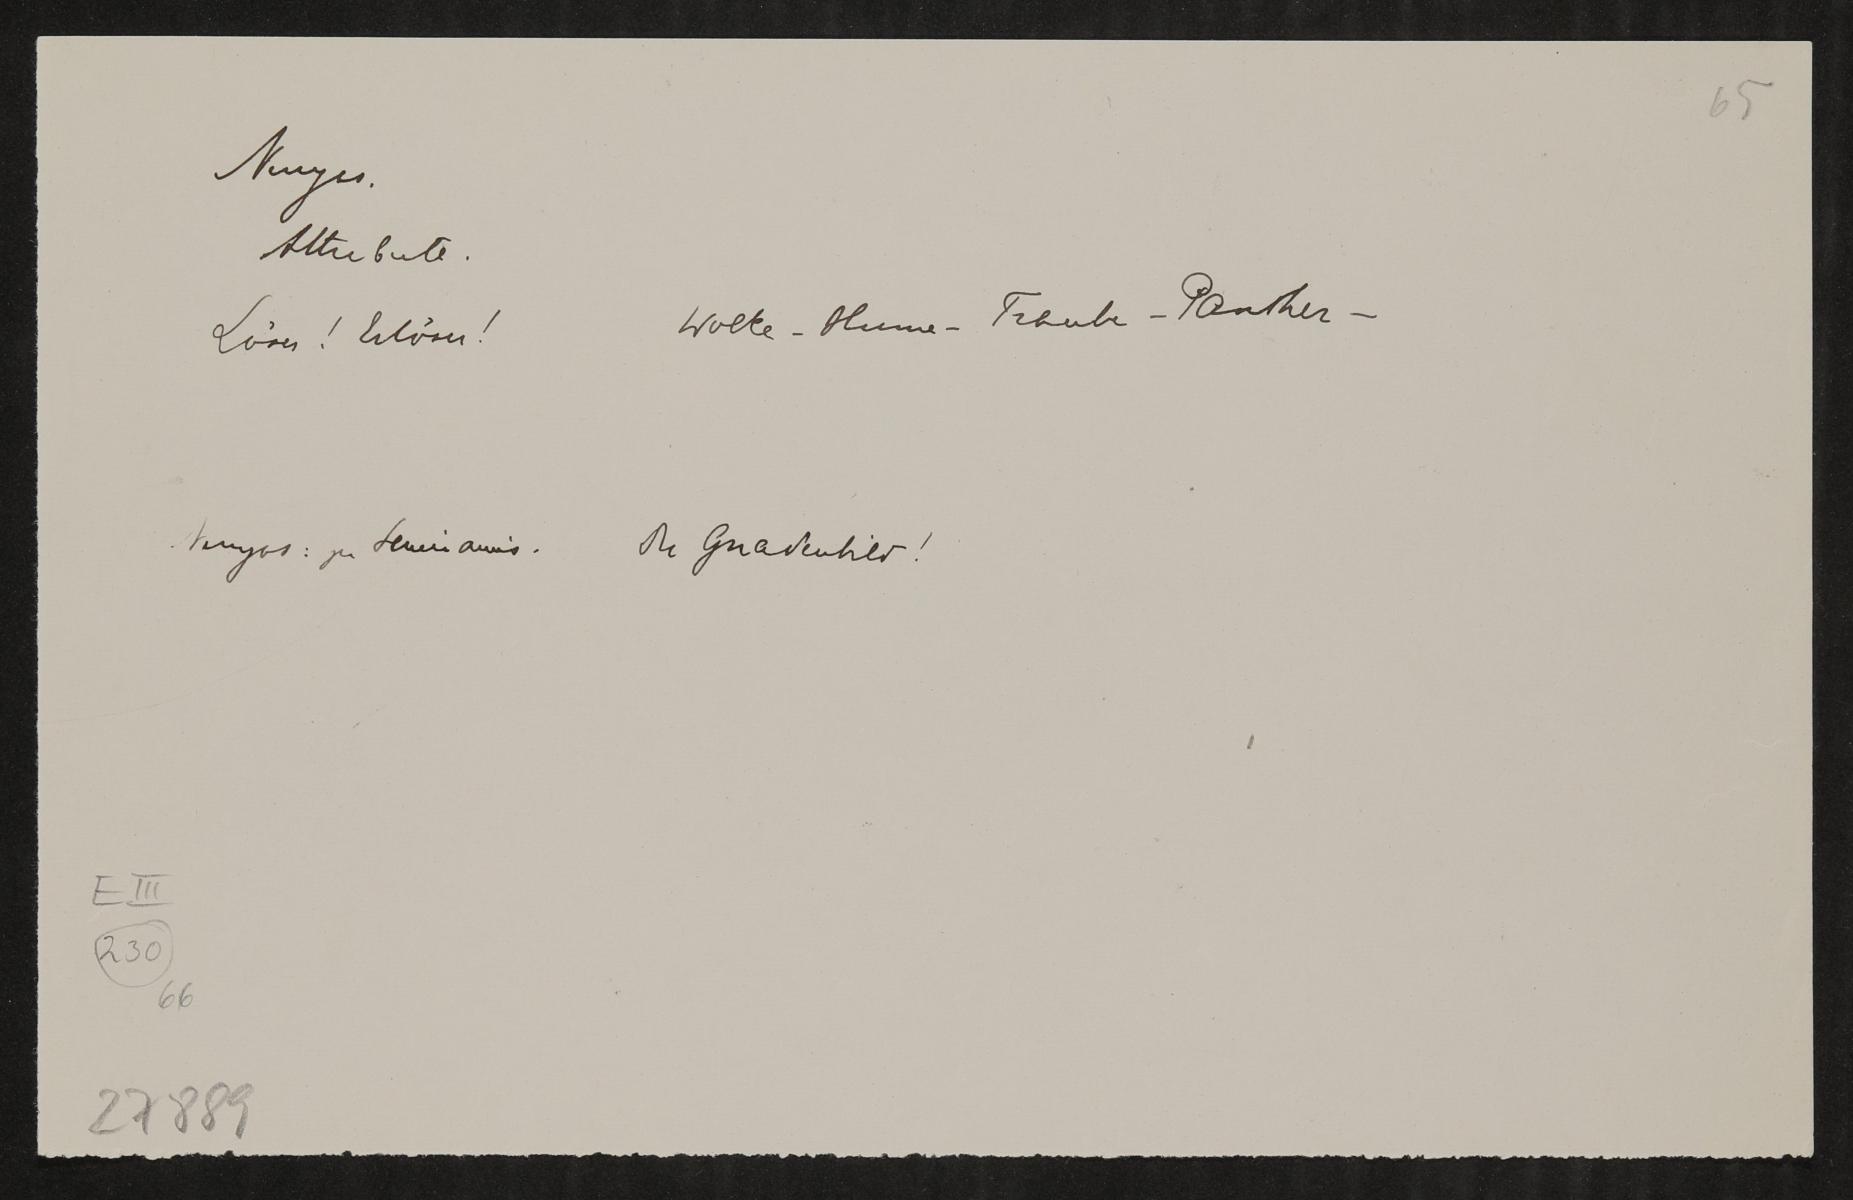 65
Ninyas.
Attribute.
Löser! Erlöser! Wolke – Blume – Traube – Panther –
Ninyas: zu Semiramis. Du Gnadenbild!
E III
230
66
27889